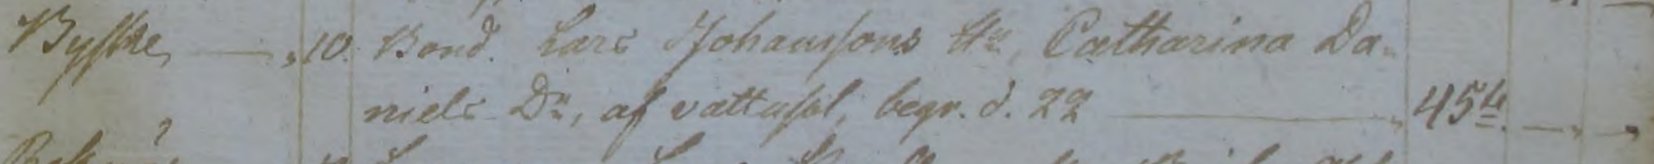 Byske, 10. Bond. Lars Johanssons Hu, Catharina Da-
niels Dr, af vattusot, begr. d. 22 45